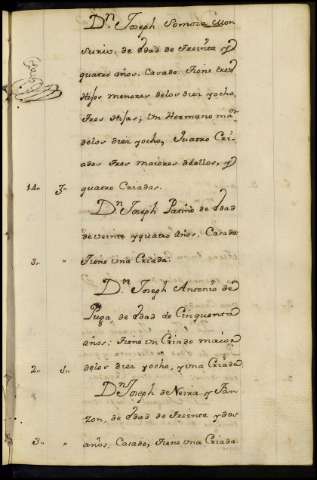 Dn. Joseph Somoza Mon
Suris, de edad de Treinta y
quatro años. Casado. Tiene tres
Hijos menores delos diez y ocho,
tres Hijas, Un Hermano mor.
delos diez y ocho, Quatro Cri-
ados tres maiores dellos, y
14.. 7.. quatro Criadas.
Dn. Joseph Patiño de edad
de veinte y quatro años, Casado
3.. " tiene una Criada.
Dn. Joseph Antonio de
Puga, de edad de Cinquenta
años; tiene un Criado maior
2.. delos diez y ocho, y una Criada
Dn. Joseph de Neira, y
zon, de edad de Sesenta y dos
3.. " años, Casado, tiene una Criada.